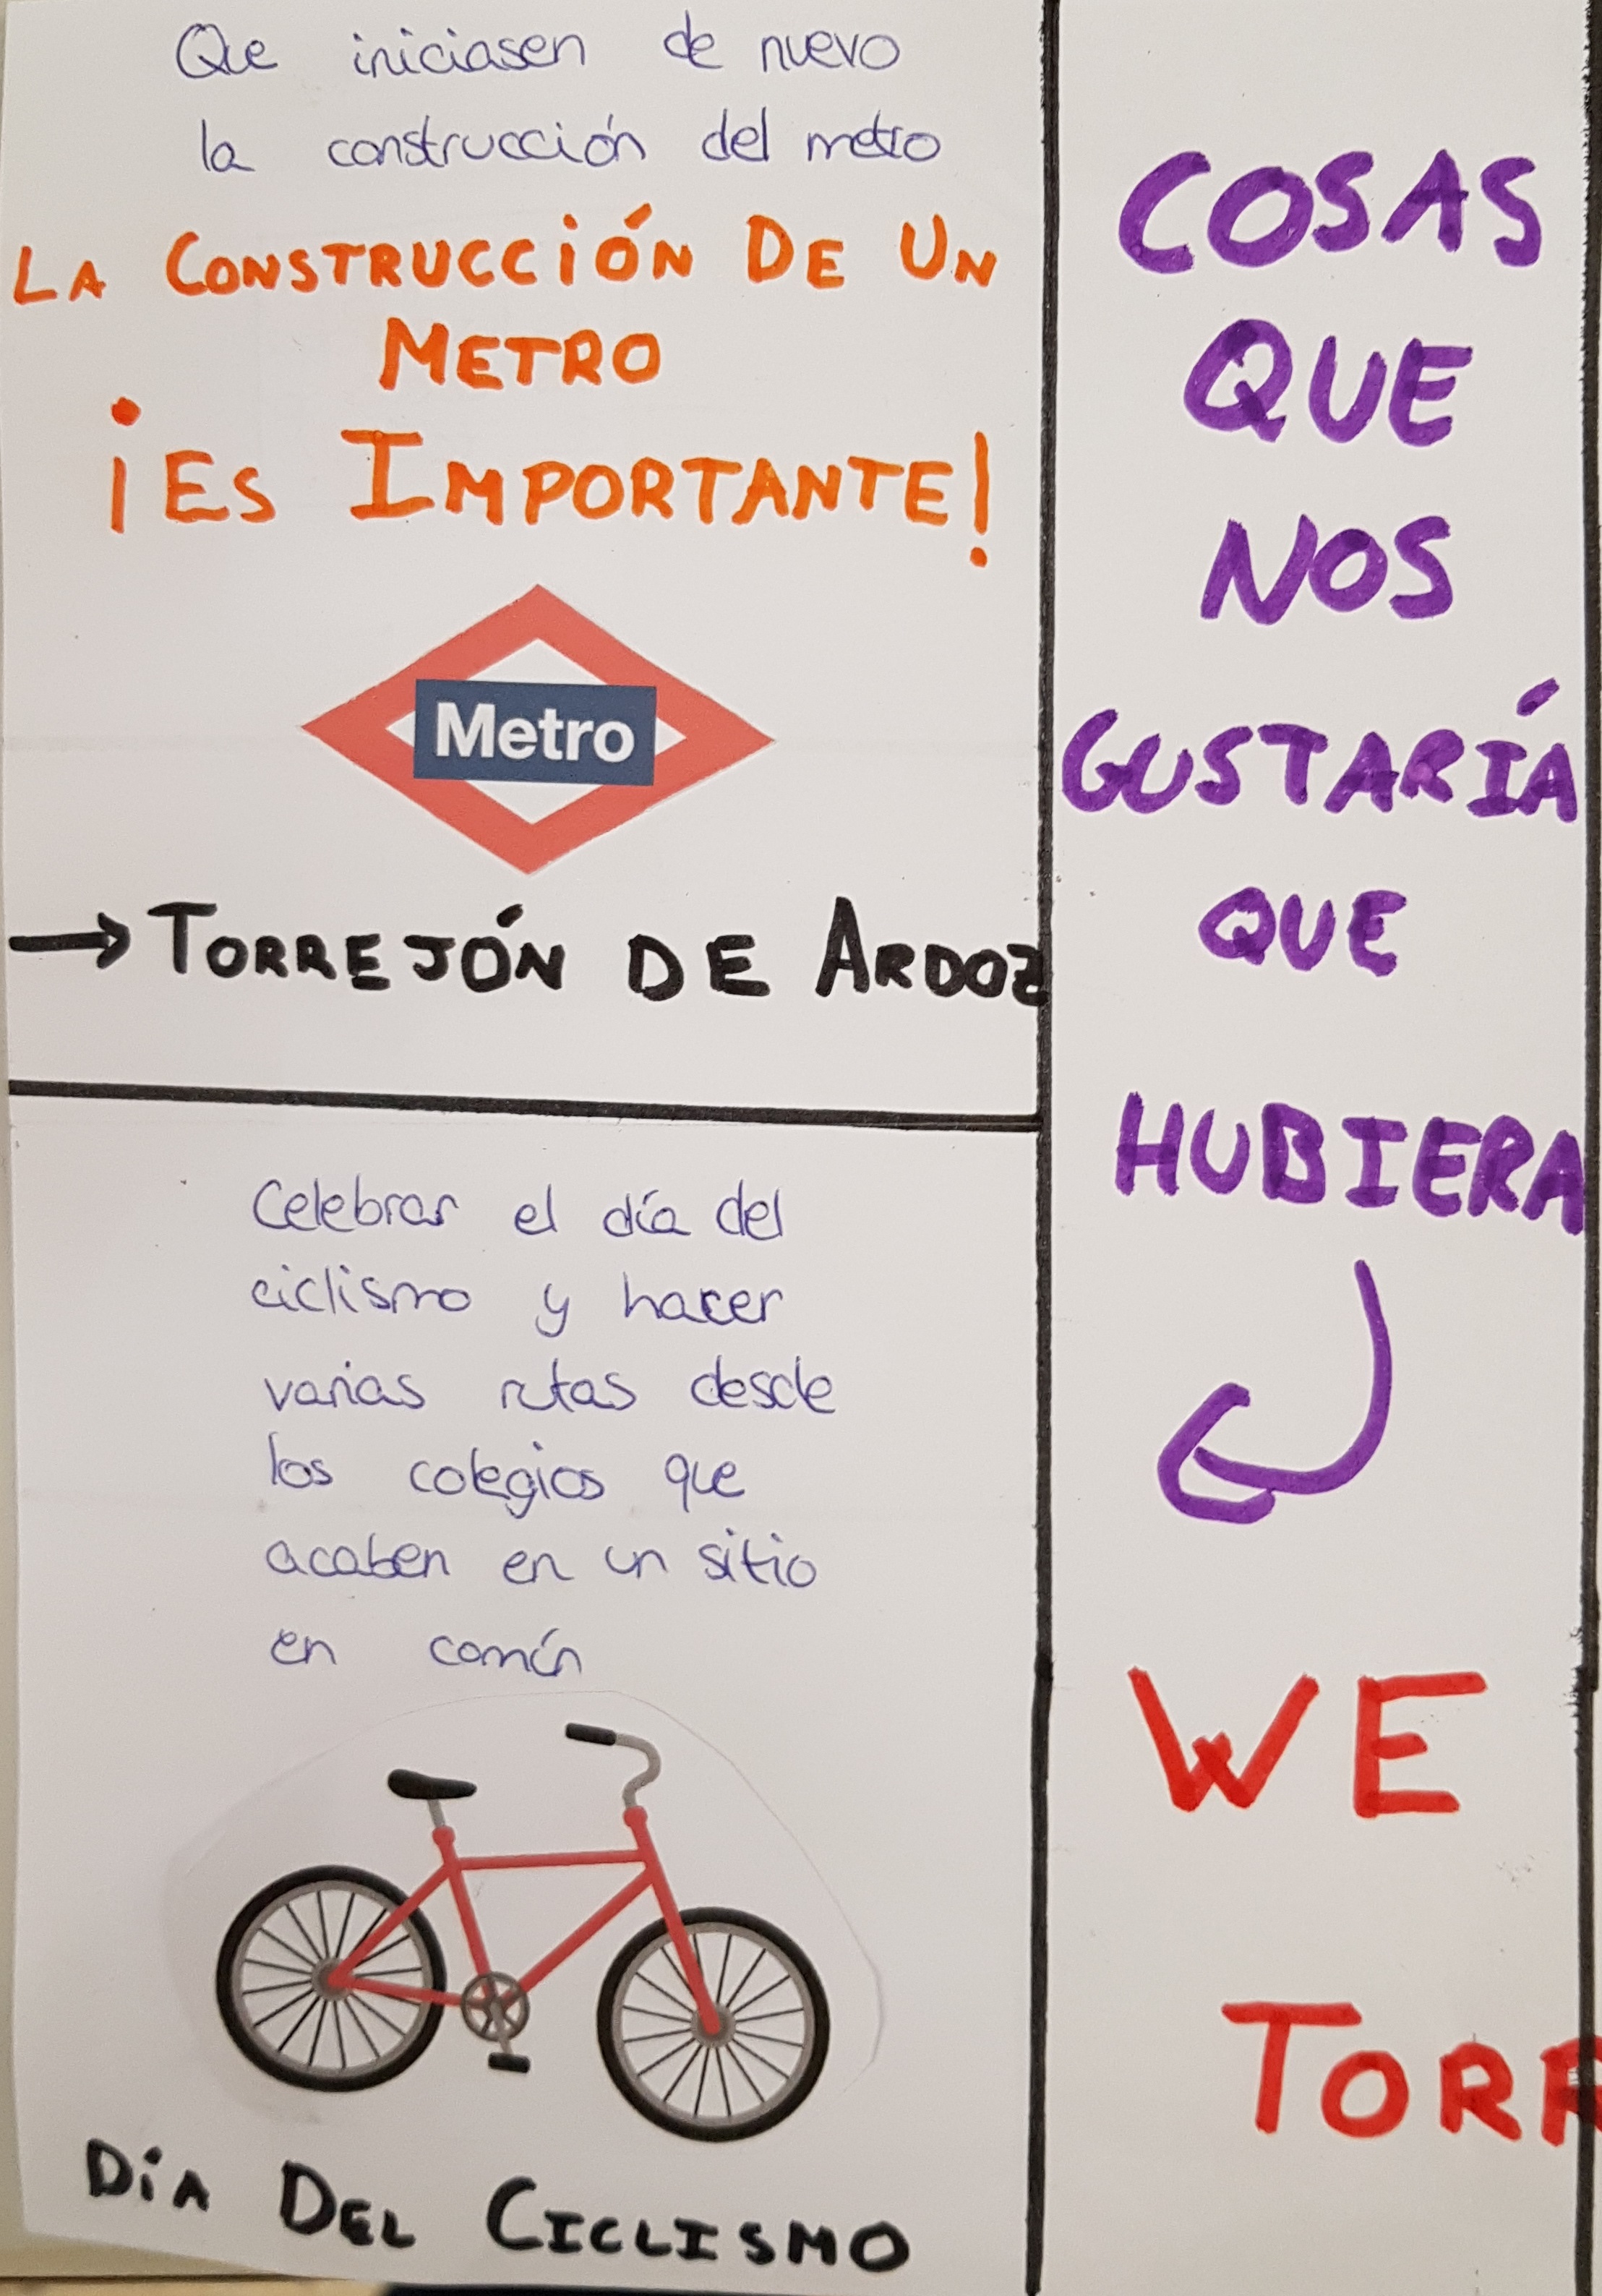 Que iniciasen de nuevo
la construcción del metro
LA CONSTRUCCIÓN DE UN
METRO
¡ES IMPORTANTE!
Metro
→ TORREJÓN DE ARDOZ
Celebrar el día del
ciclismo y hacer
varias rutas desde
los colegios que
acaben en un sitio
en común
DÍA DEL CICLISMO
COSAS
QUE
NOS
GUSTARÍA
QUE
HUBIERA
WE
TORR